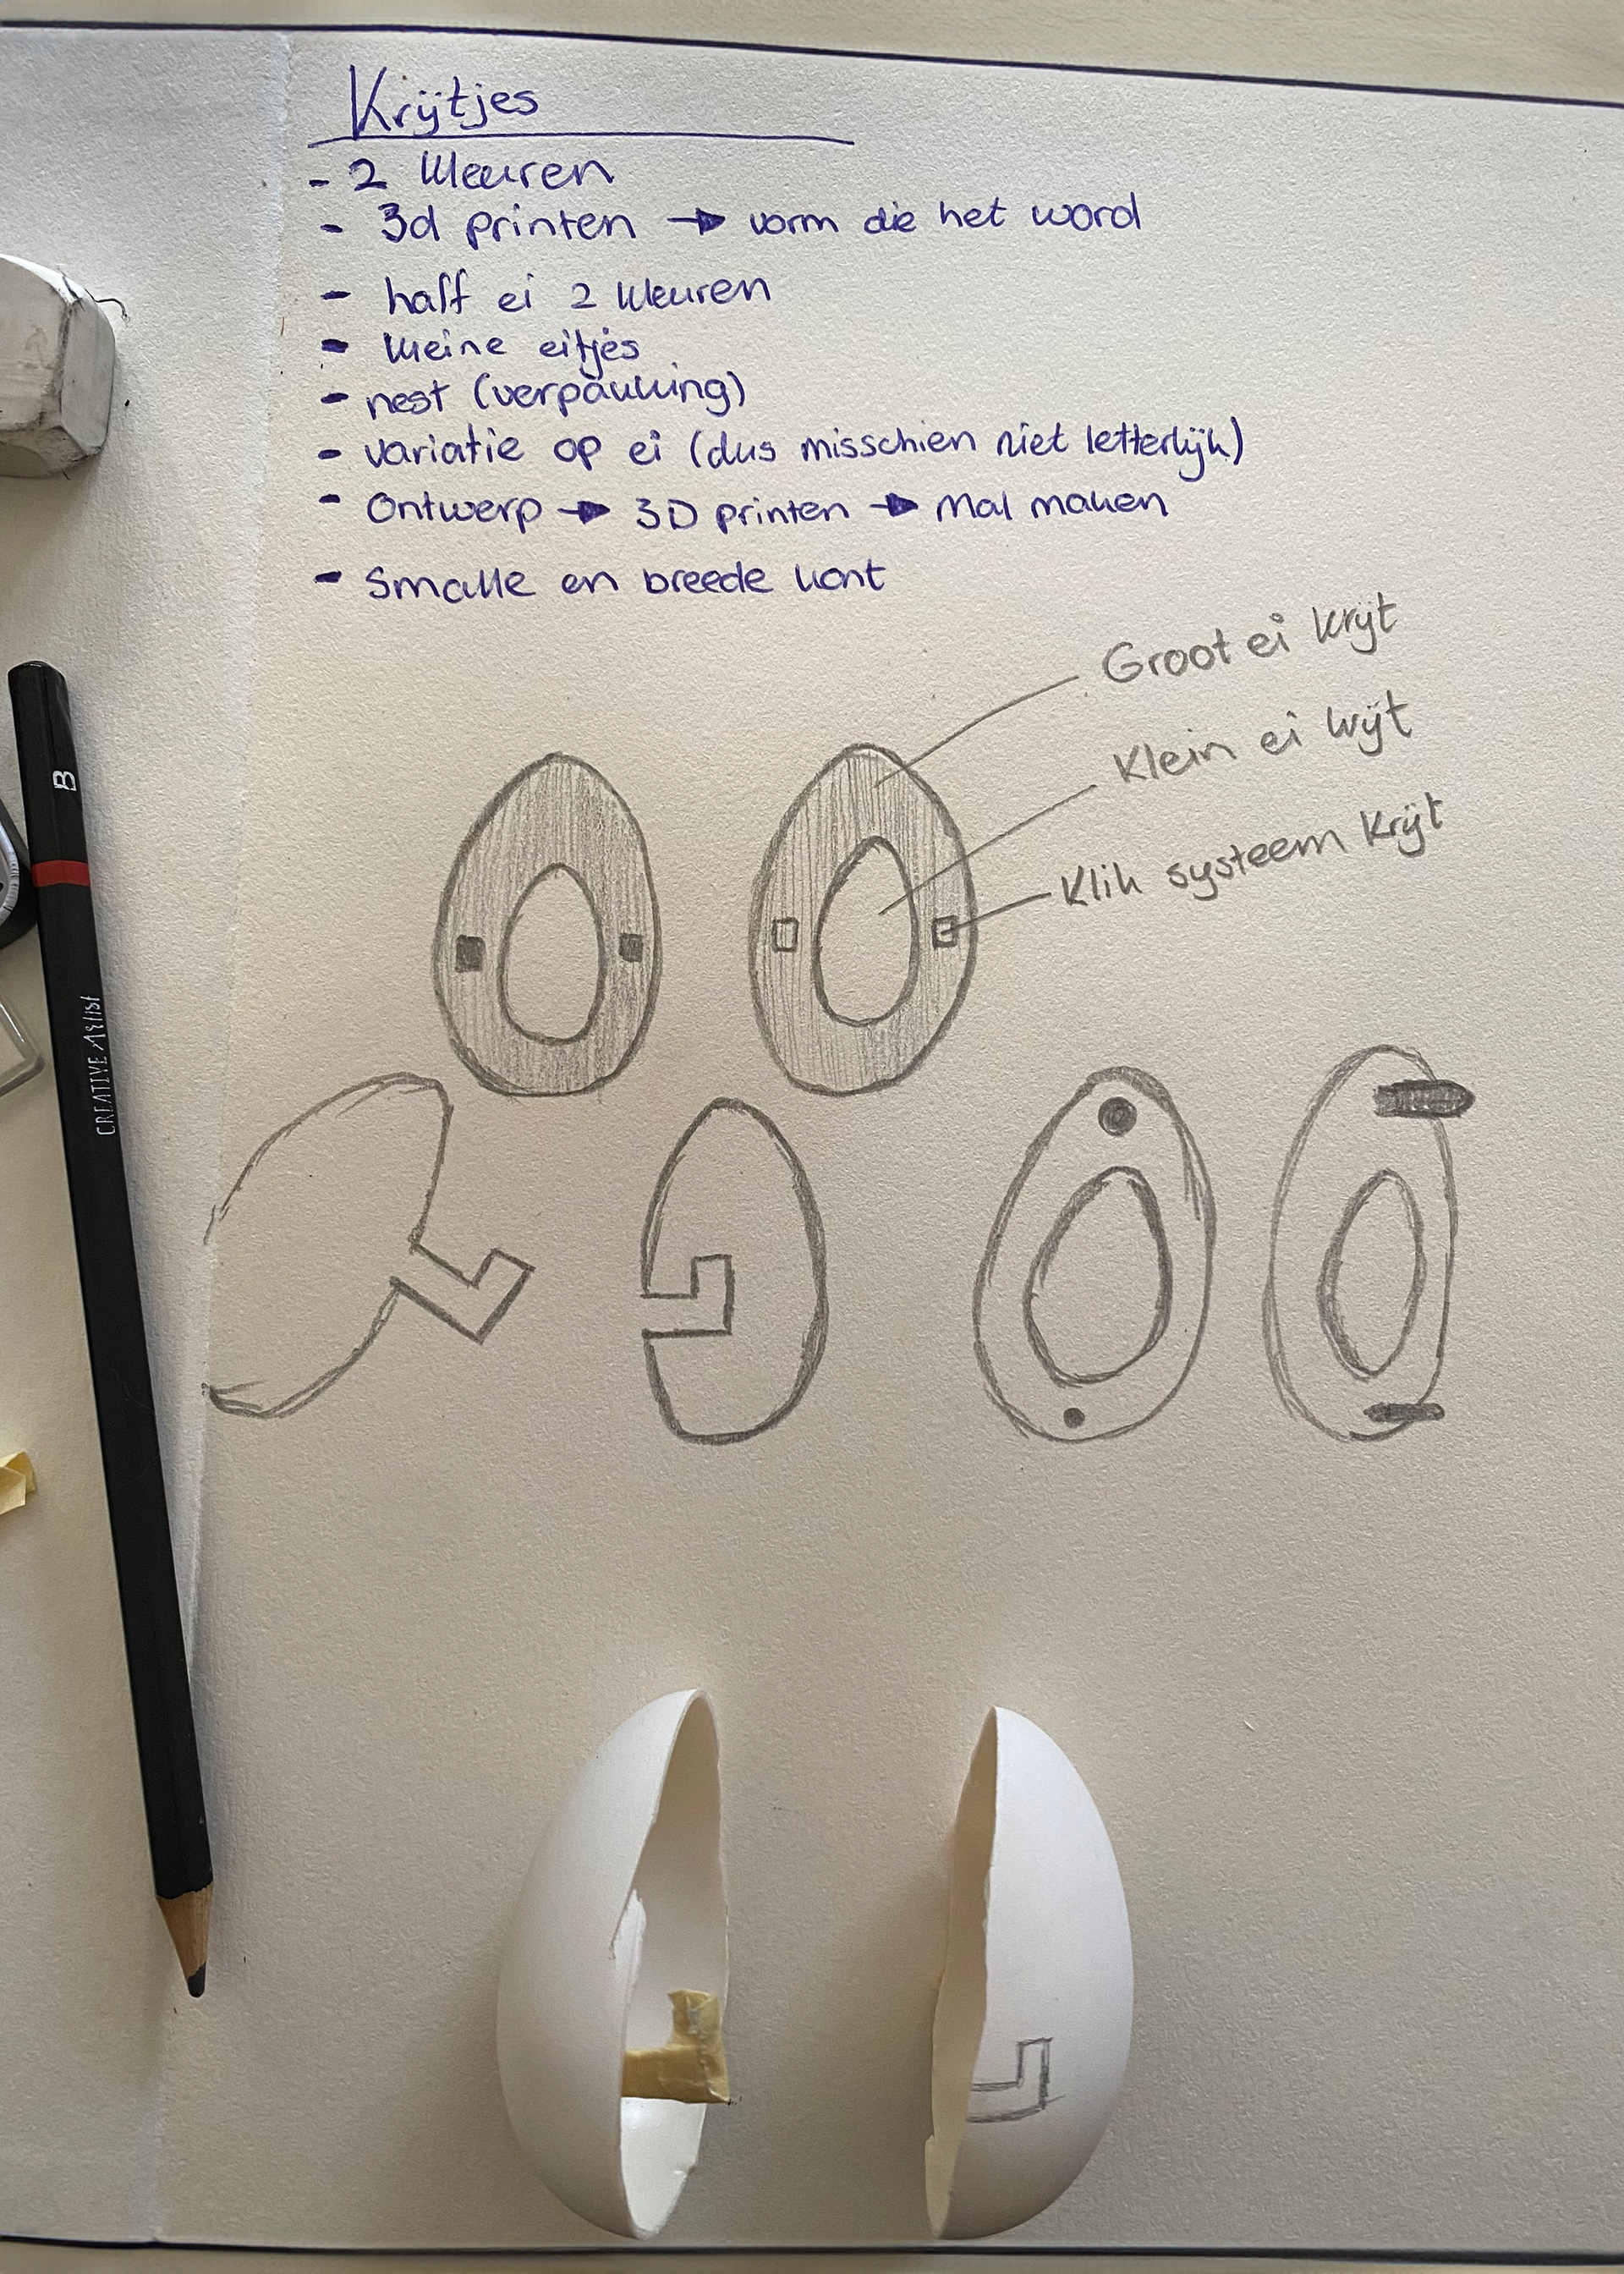 Krijtjes
- 2 kleuren
- 3d printen → vorm die het word
- half ei 2 kleuren
- kleine eitjes
- nest (verpakking)
- variatie op ei (dus misschien niet letterlijk)
- Ontwerp → 3D printen → Mal maken
- Smalle en breede kant
Groot ei krijt
Klein ei krijt
Klik systeem krijt
B
CREATIVE Artist